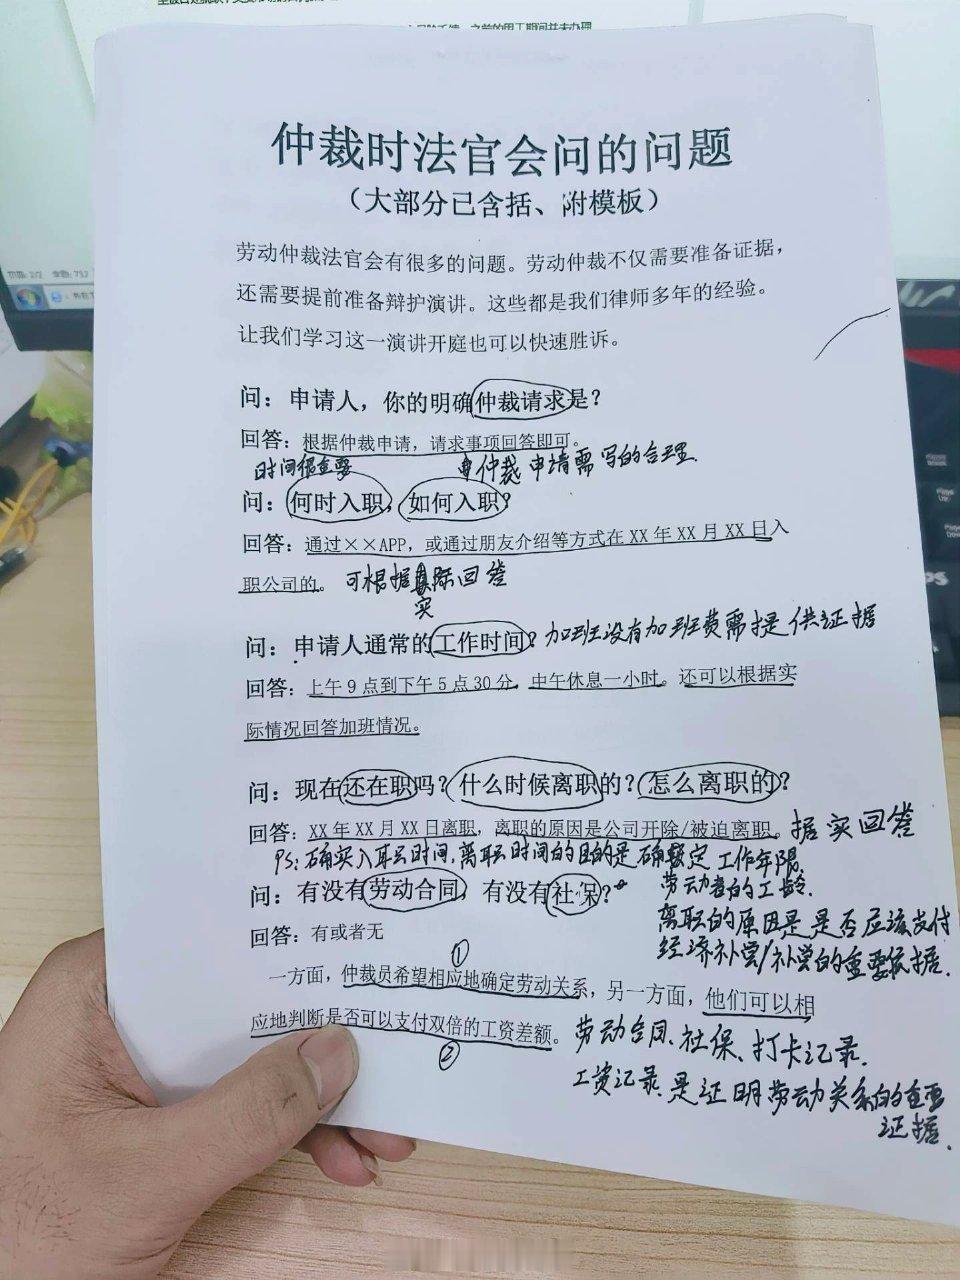 仲裁时法官会问的问题
（大部分已含括、附模板）
劳动仲裁法官会有很多的问题。劳动仲裁不仅需要准备证据，
还需要提前准备辩护演讲。这些都是我们律师多年的经验。
让我们学习这一演讲开庭也可以快速胜诉。
问：申请人，你的明确仲裁请求是？
回答：根据仲裁申请，请求事项回答即可。
时间很重要
仲裁申请需写的合理
问：何时入职，如何入职？
回答：通过××APP，或通过朋友介绍等方式在 XX 年 XX 月 XX 日入
职公司的。可根据实际回答
问：申请人通常的工作时间？加班没有加班费需提供证据
回答：上午 9 点到下午 5 点 30 分，中午休息一小时。还可以根据实
际情况回答加班情况。
问：现在还在职吗？什么时候离职的？怎么离职的？
回答：XX 年 XX 月 XX 日离职，离职的原因是公司开除/被迫离职。据实回答
PS：确实入职时间，离职时间的目的是确定工作年限，
劳动者的工龄．
问：有没有劳动合同，有没有社保？
离职的原因是是否应该支付
经济补偿/补偿的重要依据．
回答：有或者无
①
一方面，仲裁员希望相应地确定劳动关系，另一方面，他们可以相
应地判断是否可以支付双倍的工资差额。
②
劳动合同、社保、打卡记录．
工资记录．是证明劳动关系的重要
证据．